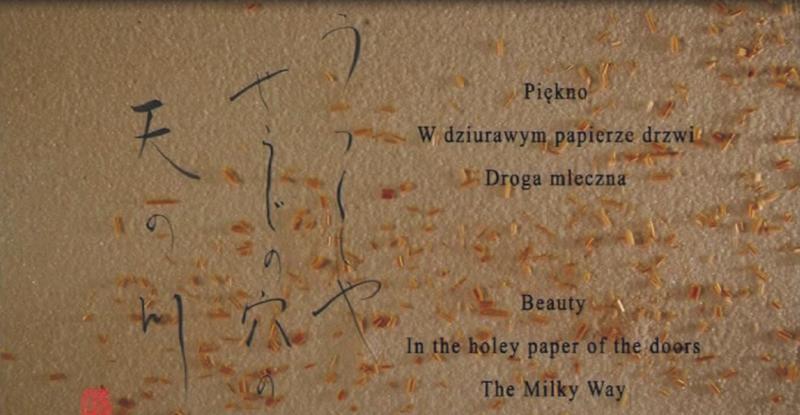 うつくしや
せうじの穴の
天の川
Piękno
W dziurawym papierze drzwi
Droga mleczna
Beauty
In the holey paper of the doors
The Milky Way